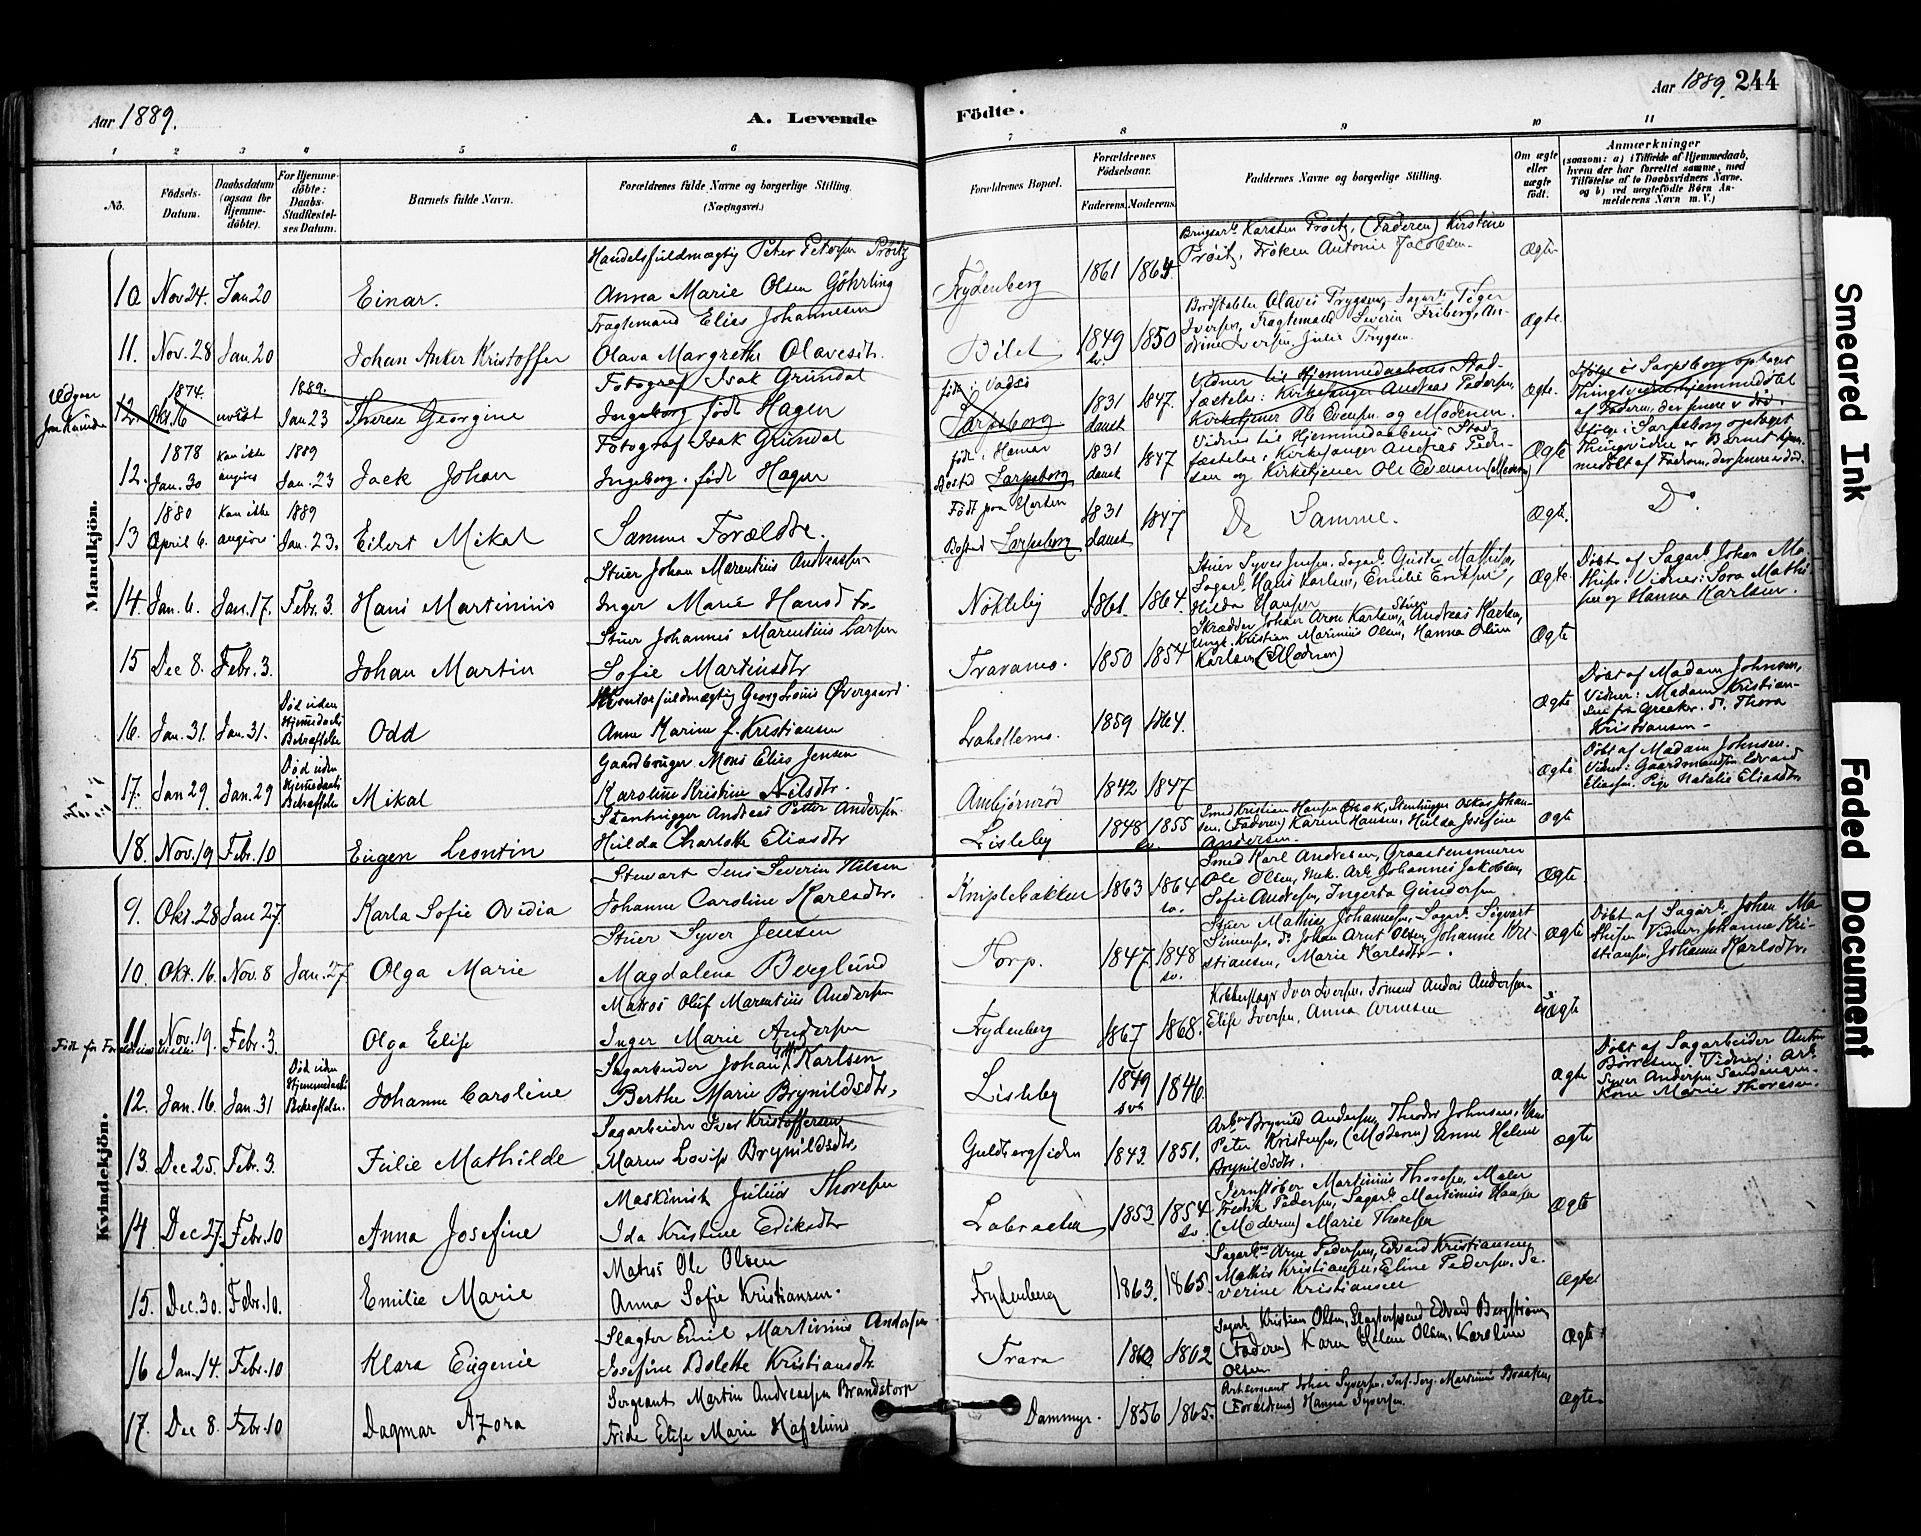 Aar 1889.
A. Levende
Födte.
Aar 1889. 244
1 2 3 4 5 6 7 8 9 10 11
No.
Födsels-
Datum.
Daabsdatum
(ogsaa for
Hjemme-
döbte).
For Hjemme-
döbte:
Daabs-
Stadfæstel-
ses Datum.
Barnets fulde Navn.
Forældrenes fulde Navne og borgerlige Stilling.
(Næringsvei.)
Forældrenes Bopæl.
Forældrenes
Födselsaar.
Faderens. Moderens.
Faddernes Navne og borgerlige Stilling.
Om ægte
eller
uægte
födt.
Anmærkninger
(saasom: a) i Tilfælde af Hjemmedaab,
hvem der har forrettet samme, med
Tilföielse af to Daabsvidners Navne,
og b) ved uægtefödte Börn An-
melderens Navn m. V.)
Mandkjön.
Handelsfuldmægtig Peter Petersen Prøitz
10 Nov 24. Jan 20 Einar. Anna Marie Olsen Göhrling
Frydenberg 1861 1864.
Brugsarb. Karsten Prøitz, (Faderen) Kirstine
Prøitz, Frøken Antonie Jacobsen
Ægte
Fragtemand Elias Johannesen
11. Nov. 28 Jan. 20 Johan Anker Kristoffer Olava Margrethe Olavesdtr.
1849 1850
Bordstabler Olaves Trygsen, Sagarb. Töger
Iversen, Fragtemand Severin Friberg, An-
drine Iversen, Julie Trygsen.
Ægte
Udgaar
1874. 1889. Fotograf Isak Grundal
12. Okt. 16 Jan 23 Therese Georgine Ingeborg født Hagen
født i Vadsö
Sarpsborg 1831 dansk 1847.
Vidner til Hjemmedaabens Stad-
fæstelse: Kirkesanger Andreas Pedersen,
Kirketjener Ole Evensen og Moderen.
Ægte.
Ifølge i Sarpsborg optaget
Thingsvidne hjemmedøbt
af Faderen, der senere er död.
1878 kan ikke 1889 Fotograf Isak Grundal
12. Jan. 30 angives Jan. 23 Jack Johan Ingeborg født Hagen
født i Hamar
Bosted Sarpsborg 1831 dansk 1847
Vidner til Hjemmedaabens Stad-
fæstelse: Kirkesanger Andreas Peder-
sen og Kirketjener Ole Evensen (Moderen)
Ægte
Ifølge i Sarpsborg optaget
Thingsvidne er Barnet hjem-
medøbt af Faderen, der senere er död.
1880 kan ikke 1889
13 April 6. angives Jan. 23. Eilert Mikal Samme Forældre.
Født paa Horten
Bosted Sarpsborg 1831 dansk 1847
De Samme.
Ægte.
Do
Stuer Johan Marentius Andreassen
14. Jan. 6. Jan. 17. Febr. 3. Hans Martinius Inger Marie Hansdtr.
Nökleby 1861 1864.
Stuer Syver Jensen, Sagarb. Gustav Mathisen,
Sagarb. Hans Karlsen, Emilie Eriksen,
Hilda Hansen
Ægte.
Döbt af Sagarb. Johan Ma-
thisen. Vidner: Lora Mathi-
sen og Hanna Karlsen.
Stuer Johannes Marentius Larsen
15 Dec 8. Febr. 3. Johan Martin Sofie Martinsdtr
1850 1854
Skrædder Johan Aron Karlsen, Stuer Andreas Karlsen,
Ungk. Kristian Marinius Olsen, Hanna Olsen
Karlsen (Moderen)
Ægte
Død uden
Hjemmedaabs
Bekræftelse
Kontorfuldmægtig Georg Louis Øvergaard
16. Jan. 31. Jan. 31. Odd Anne Marine f. Kristiansen
Lahellemo. 1859 1864.
Ægte
Döbt af Madam Johnsen,
Vidner: Madam Kristian-
sen fra Greaker. Thora
Kristiansen
Død uden
Hjemmedaabs
Bekræftelse
Gaardbruger Mons Elias Jensen
17. Jan 29. Jan. 29 Mikal Karoline Kristine Nilsdtr.
Ambjörnröd 1842 1847
Ægte
Döbt af Madam Johnsen.
Vidner: Gaardmanden Edvard
Eliasen. Pige Natalie Eliasdtr
Stenhugger Andreas Petter Andersen
18. Nov. 19 Febr. 10 Eugen Leontin Hulda Charlotte Eliasdtr
Lisleby 1848 1855
Smed Kristian Hansen, Stenhugger Oskar Johan-
sen, (Faderen) Karen Hansen, Hulda Josefine
Andersen.
Ægte
Kvindekjön.
Stewart Jens Severin Nilsen
9. Okt. 28 Jan 27. Karla Sofie Ovidia Johanne Caroline Karlsdtr.
Kniplebakken 1863 1864 sv.
Smed Karl Andresen, Graastensmurer
Ole Olsen, Mek. Arb. Johannes Jakobsen,
Sofie Andresen, Ingerta Gundersen
Ægte
Stuer Syver Jensen
10. Okt. 16. Nov. 8 Jan. 27 Olga Marie Magdalena Berglund
Torp. 1847 1848 sv.
Stuer Mathias Johannesen, Sagarb. Sigvart
Simensen, do Johan Arnt Olsen, Johanne Kri-
stiansen, Marie Karlsdtr.
Ægte
Döbt af Sagarb. Johan Ma-
thisen Vidner: Johanne Kri-
stiansen, Johanne Karlsdtr.
Matros Oluf Marentius Andersen
11 Nov. 19. Febr. 3. Olga Elise Inger Marie Andersen
Født før
Frydenberg 1867 1868.
Iver Iversen, Anders Andersen
Elise Iversen, Anna Arnesen
Ægte
Død uden
Hjemmedaabs
Bekræftelse.
Sagarbeider Johan Karlsen
12. Jan. 16. Jan. 31 Johanne Caroline Berthe Marie Brynildsdtr.
Lisleby 1849 1846
Ægte
Döbt af Sagarbeider Anton
Börresen. Vidner: Arb.
Syver Andersen Sandengen
Kone Marie Thoresen.
Sagarbeider Iver Kristoffersen
13. Dec 25. Febr. 3. Julie Mathilde Maren Lovise Brynildsdtr.
Guldbergsiden 1843. 1851.
Arb. Brynild Andersen, Theodor Johnsen, Hans
Peter Kristensen, (Moderen) Anne Helene
Brynildsdtr.
Ægte
Maskinist Julius Thoresen
14 Dec 27. Febr. 10 Anna Josefine Ida Kristine Eriksdtr
Labraaten 1853 1854 sv.
Jernstöber Martinius Thoresen, Maler
Fredrik Pedersen, Sagarb. Martinius Hansen
(Moderen) Marie Thoresen
Ægte
Matros Ole Olsen
15. Dec. 30. Febr. 10. Emilie Marie Anna Sofie Kristiansen.
Frydenberg 1863. 1865.
Sagarb. Arne Pedersen, Edvard Kristiansen,
Mathis Kristiansen, Eline Pedersen, Se-
verine Kristiansen
Ægte
Slagter Emil Martinius Andersen
16 Jan. 14. Febr. 10 Klara Eugenie Josefine Bolette Kristiansdtr.
Trara
Sagarb. Kristian Olsen, Slagtersvend Edvard Bergström,
(Faderen) Karen Helene Olsen, Karoline
Olsen
Ægte
Sergeant Martin Andreassen Brandstorp
17. Dec 8. Febr. 10 Dagmar Azora Frida Elise Marie Hafslund.
Dammyr. 1856 1865.
Johan Syversen,
(Forældrene) Hanna Syversen.
Ægte
Smeared Ink
Faded Document